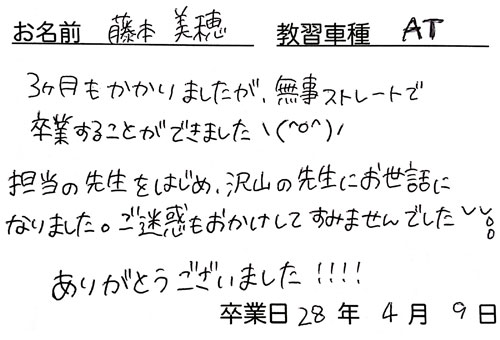 お名前 藤本 美穂 教習車種 AT
3ヶ月もかかりましたが、無事ストレートで
卒業することができました\(^o^)/
担当の先生をはじめ、沢山の先生にお世話に
なりました。ご迷惑もおかけしてすみませんでした
ありがとうございました!!!!
卒業日 28 年 4 月 9 日